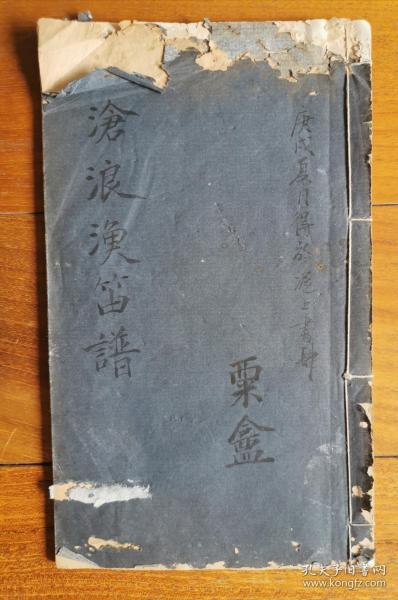 庚戌夏月得於滬上書肆
粟盦
滄浪漁笛譜
孔夫子旧书网
www.kongfz.com